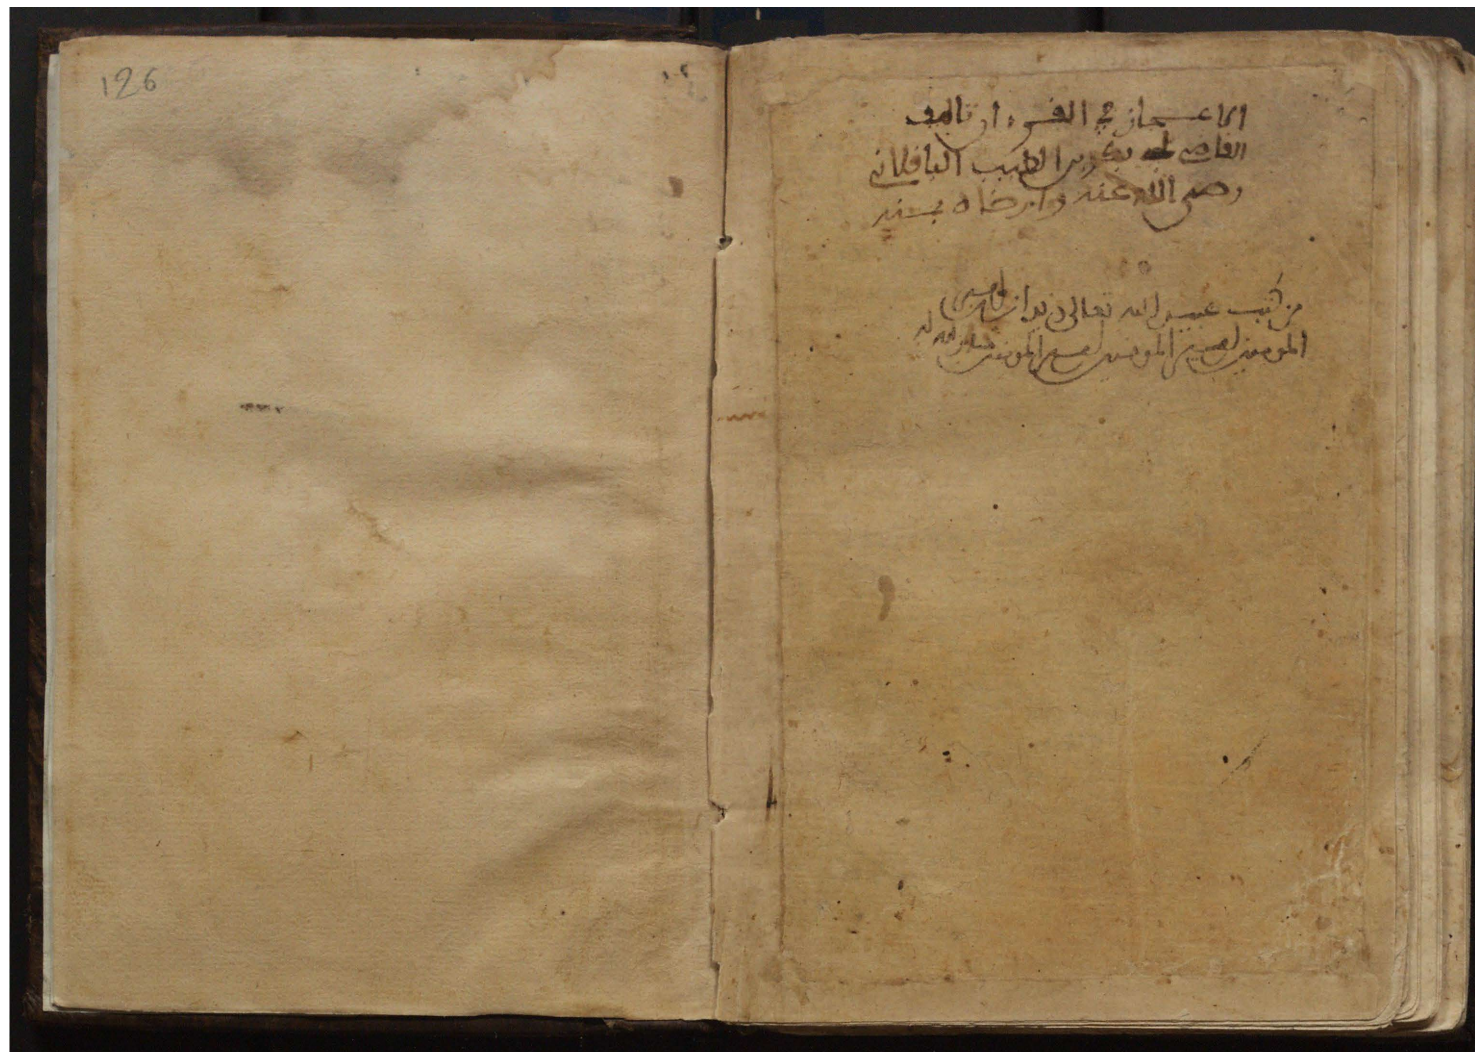 126
الاعجاز في القرءان تاليف
القاضي ابي بكر بن الطيب الباقلاني
رضي الله عنه وارضاه بمنه
من كتب عبد الله تعالى زيدان
المومنين امير المومنين المومنين